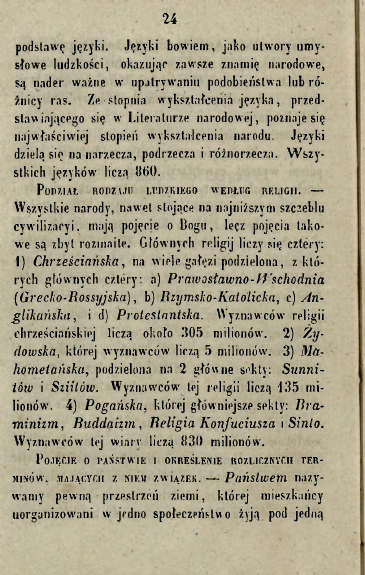 24
podstawę języki. Języki bowiem, jako utwory umy-
słowe ludzkości, okazując zawsze znamię narodowe,
są nader ważne w upatrywaniu podobieństwa lub ró-
żnicy ras. Ze stopnia wykształcenia języka, przed-
stawiającego się w Literaturze narodowej, poznaje się
najwłaściwiej stopień wykształcenia narodu. Języki
dzielą się na narzecza, podrzecza i różnorzecza. Wszy-
stkich języków liczą 860.
PODZIAŁ RODZAJU LUDZKIEGO WEDŁUG RELIGII. —
Wszystkie narody, nawet stojące na najniższym szczeblu
cywilizacyi, mają pojęcie o Bogu, lecz pojęcia tako-
we są zbyt rozmaite. Głównych religij liczy się cztéry:
1) Chrześciańska, na wiele gałęzi podzielona, z któ-
rych głównych cztéry: a) Prawosławno-Wschodnia
(Grecko-Rossyjska), b) Rzymsko-Katolicka, c) An-
glikańska, i d) Protestantska. Wyznawców religii
chrześciańskiej liczą około 305 milionów. 2) Ży-
dowska, której wyznawców liczą 5 milionów. 3) Ma-
hometańska, podzielona na 2 główne sekty: Sunni-
tów i Sziitów. Wyznawców tej religii liczą 135 mi-
lionów. 4) Pogańska, której główniejsze sekty: Bra-
minizm, Buddaizm, Religia Konfuciusza i Sinto.
Wyznawców tej wiary liczą 830 milionów.
POJĘCIE O PAŃSTWIE I OKREŚLENIE ROZLICZNYCH TER-
MINÓW, MAJĄCYCH Z NIEM ZWIĄZEK. — Państwem nazy-
wamy pewną przestrzeń ziemi, której mieszkańcy
uorganizowani w jedno społeczeństwo żyją pod jedną